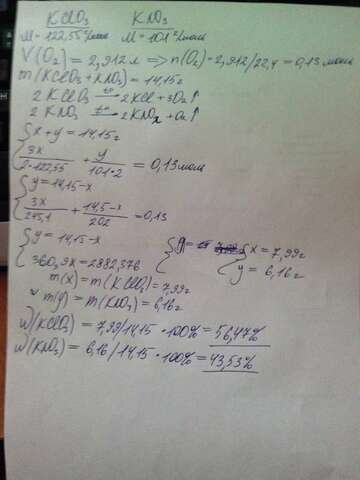 KClO₃ KNO₃
M = 122,55 г/моль M = 101 г/моль
V(O₂) = 2,912 л => n(O₂) = 2,912/22,4 = 0,13 моль
m(KClO₃ + KNO₃) = 14,15г
2 KClO₃ –t°→ 2 KCl + 3O₂↑
2 KNO₃ –t°→ 2 KNO₂ + O₂↑
{ x + y = 14,15г
3x/2·122,55 + y/101·2 = 0,13 моль
{ y = 14,15 - x
3x/245,1 + 14,15-x/202 = 0,13
{ y = 14,15 - x { x = 7,99г
360,9x = 2882,376 y = 6,16г
m(x) = m(KClO₃) = 7,99г
m(y) = m(KNO₃) = 6,16г
w(KClO₃) = 7,99/14,15 · 100% = 56,47%
w(KNO₃) = 6,16/14,15 · 100% = 43,53%